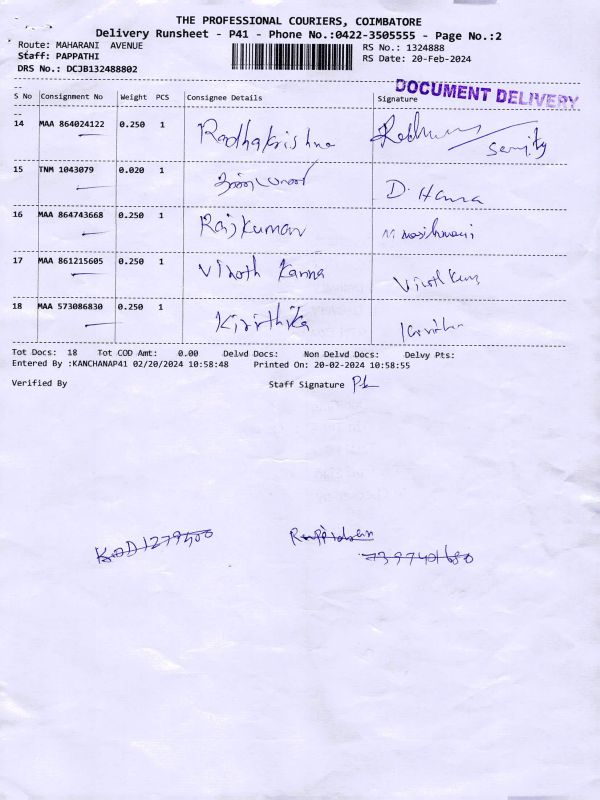 THE PROFESSIONAL COURIERS, COIMBATORE
Delivery Runsheet - P41 - Phone No.:0422-3505555 - Page No.:2
Route: MAHARANI AVENUE
RS No.: 1324888
Staff: PAPPATHI
RS Date: 20-Feb-2024
DRS No.: DCJB132488802
DOCUMENT DELIVERY
S No Consignment No Weight PCS Consignee Details Signature
14 MAA 864024122 0.250 1 Radhakrishna
15 TNM 1043079 0.020 1 D. Hema
16 MAA 864743668 0.250 1 Rajkumar
17 MAA 861215605 0.250 1 Vinoth Kanna
18 MAA 573086830 0.250 1 Kirithika
Tot Docs: 18 Tot COD Amt: 0.00 Delvd Docs: Non Delvd Docs: Delvy Pts:
Entered By :KANCHANAP41 02/20/2024 10:58:48 Printed On: 20-02-2024 10:58:55
Verified By Staff Signature